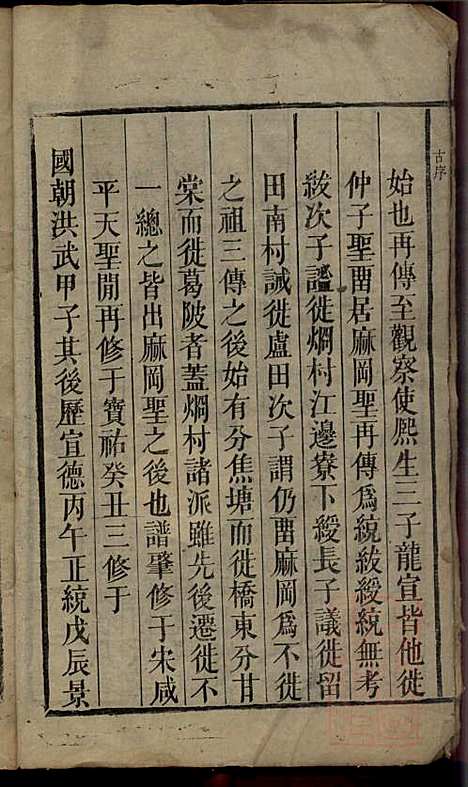 古序
始也再傳至觀察使熙生三子龍宣皆他徙
仲子聖畱居麻岡聖再傳爲綂紱綬綂無考
紱次子謐徙烱村江邊寮下綬長子議徙留
田南村諴徙盧田次子謂仍畱麻岡爲不徙
之祖三傳之後始有分焦塘而徙橋東分甘
棠而徙葛陂者蓋烱村諸派雖先後遷徙不
一總之皆出麻岡聖之後也譜肇修于宋咸
平天聖閒再修于寶祐癸丑三修于
國朝洪武甲子其後歷宣德丙午正統戊辰景